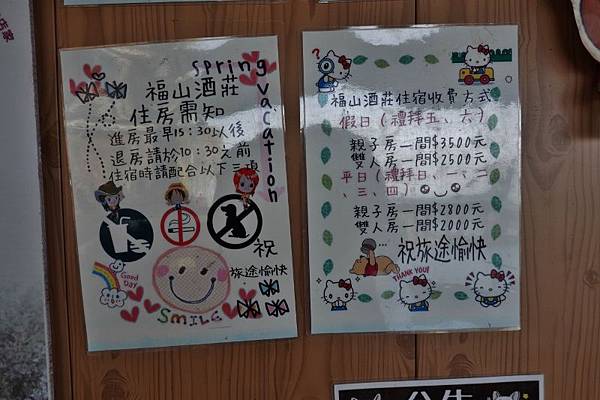 spring vacation
福山酒莊
住房需知
進房最早15:30以後
退房請於10:30之前
住宿時請配合以下三項
祝
旅途愉快
Good Day
SMILE
福山酒莊住宿收費方式
假日(禮拜五、六)
親子房一間$3500元
雙人房一間$2500元
平日(禮拜日、一、二
、三、四)
親子房一間$2800元
雙人房一間$2000元
祝旅途愉快
THANK YOU!